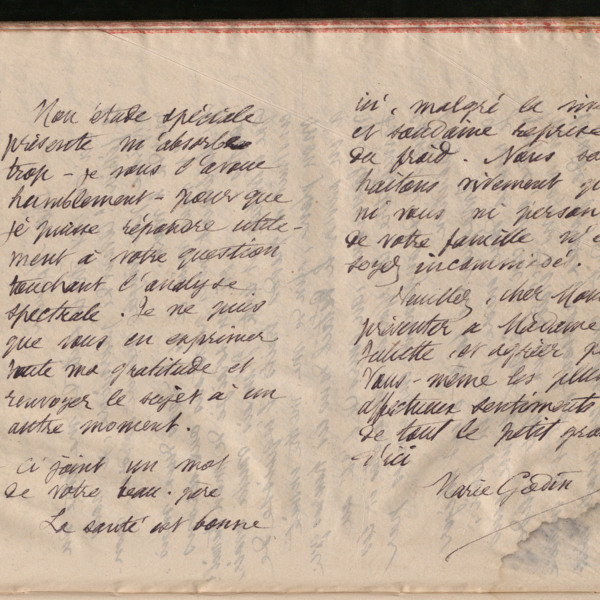 Mon étude spéciale
présente m'absorbe
trop - je vous l'avoue
humblement - pour que
je puisse répondre utile-
ment à votre question
touchant l'analyse
spectrale. Je ne puis
que vous en exprimer
toute ma gratitude et
renvoyer le sujet à un
autre moment.
Ci joint un mot
de votre beau-père
La santé est bonne
ici, malgré la
et soudaine reprise
du froid. Nous sou
haitons vivement qu
ni vous ni person
de votre famille n'e
soyez incommodé.
Veuillez, cher Mon
présenter à Madame
Juliette et agréer p
vous-même les plus
affectueux sentiments
de tout le petit gro
d'ici
Marie Godin